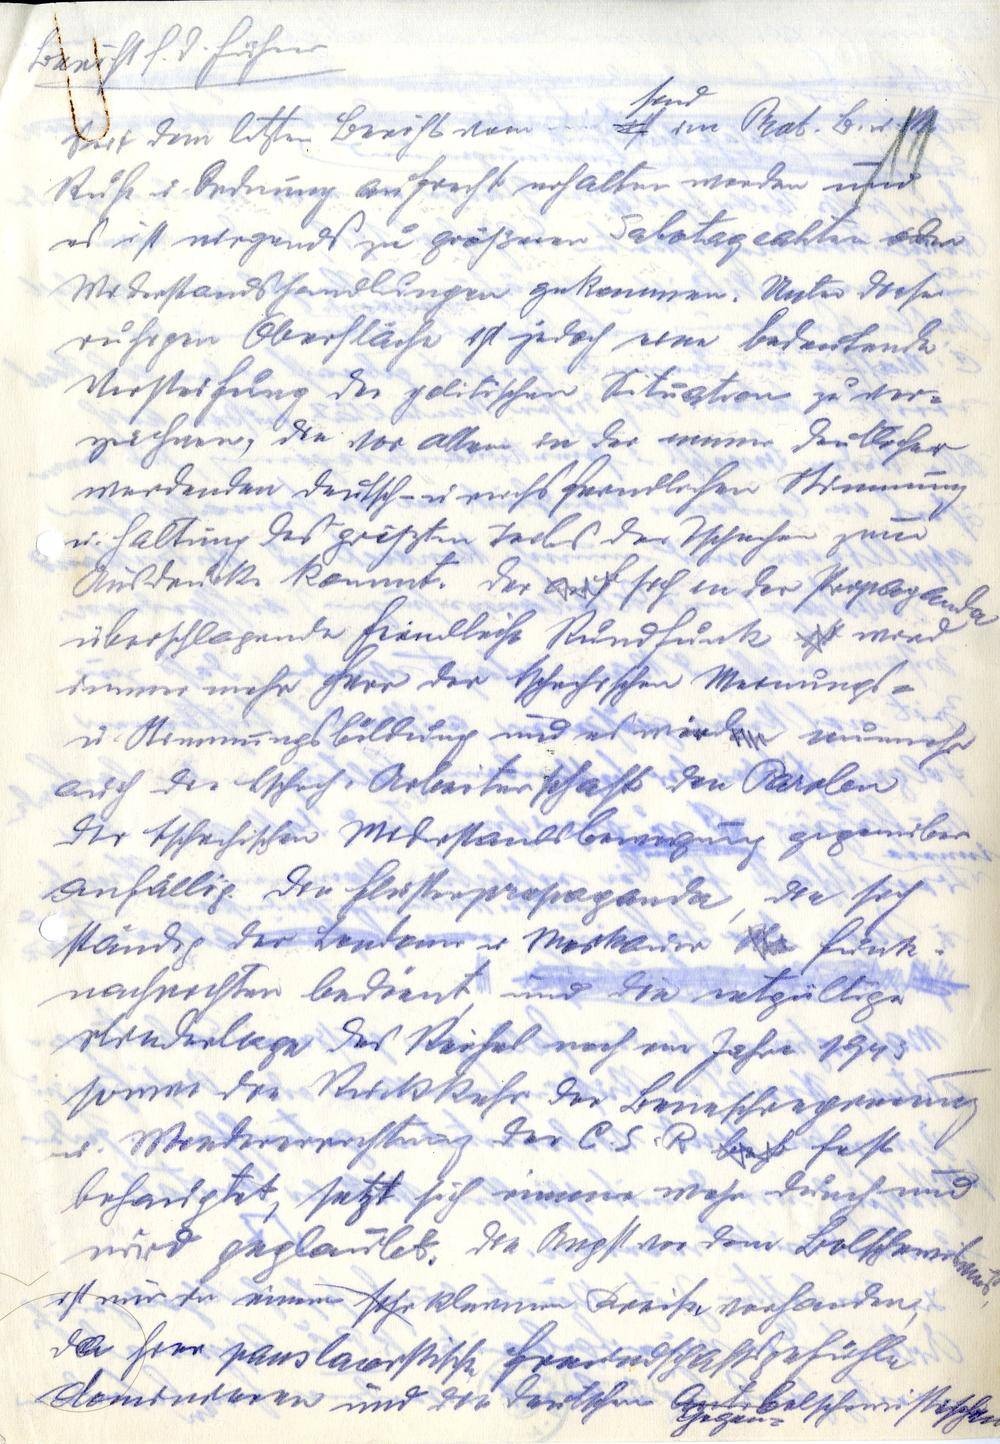 Bericht f. d. Führer
Seit dem letzten Bericht vom ... sind im Prot. B. u. M.
Ruhe u. Ordnung aufrecht erhalten worden und
es ist nirgends zu größeren Sabotageakten oder
Widerstandshandlungen gekommen. Unter dieser
ruhigen Oberfläche ist jedoch eine bedeutende
Versteifung der politischen Situation zu ver-
zeichnen, die vor allem in der immer deutlicher
werdenden deutsch- u reichsfeindlichen Stimmung
u. Haltung des größten Teils der Tschechen zum
Ausdruck kommt. Der sich in der Propaganda
überschlagende feindliche Rundfunk wird
immer mehr Herr der tschechischen Meinungs-
u Stimmungsbildung und es wird nunmehr
auch die tschech. Arbeiterschaft den Parolen
der tschechischen Widerstandsbewegung gegenüber
anfällig. Die Flüsterpropaganda, die sich
ständig der Londoner u Moskauer Funk-
nachrichten bedient, und die entgültige
Niederlage des Reiches noch im Jahre 1943
sowie die Rückkehr der Beneschregierung
u. Wiedererrichtung der C.S.R fest
behauptet, setzt sich immer mehr durch und
wird geglaubt. Die Angst vor dem Bolschewismus
ist nur in einem sehr kleinen Kreise vorhanden,
da hier panslawistische Freundschaftsgefühle
dominieren und die deutschen Gegen-
bolschewistischen